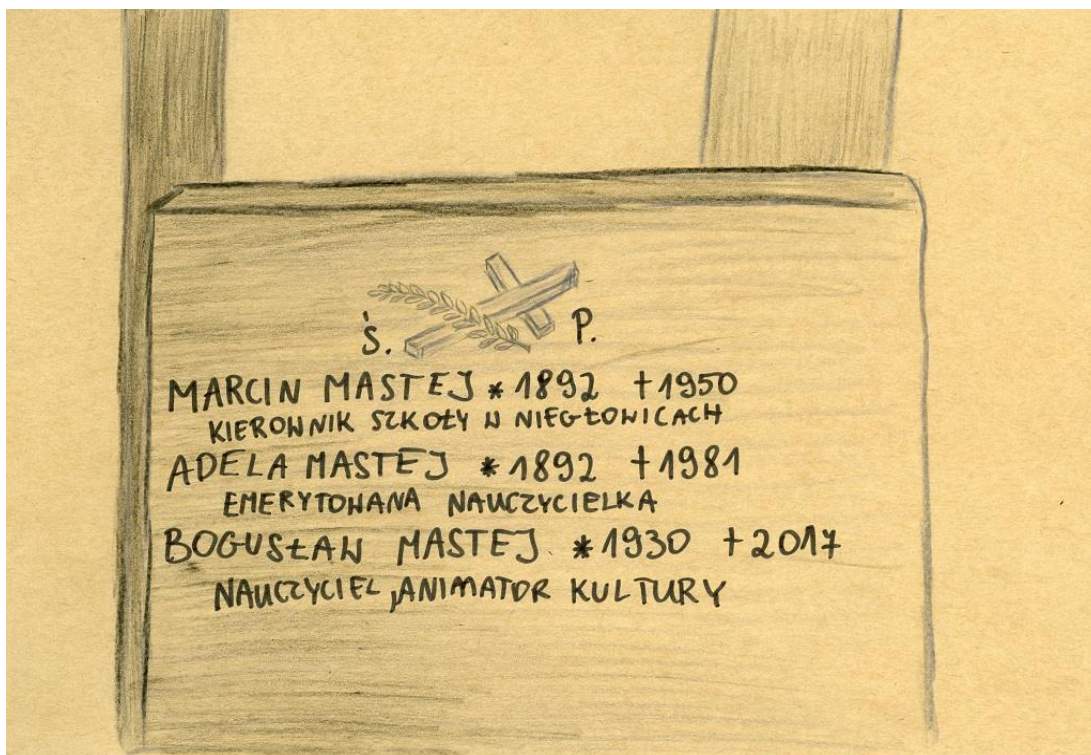 Ś. P.
MARCIN MASTEJ *1892 +1950
KIEROWNIK SZKOŁY W NIEGŁOWICACH
ADELA MASTEJ *1892 +1981
EMERYTOWANA NAUCZYCIELKA
BOGUSŁAW MASTEJ *1930 +2017
NAUCZYCIEL, ANIMATOR KULTURY